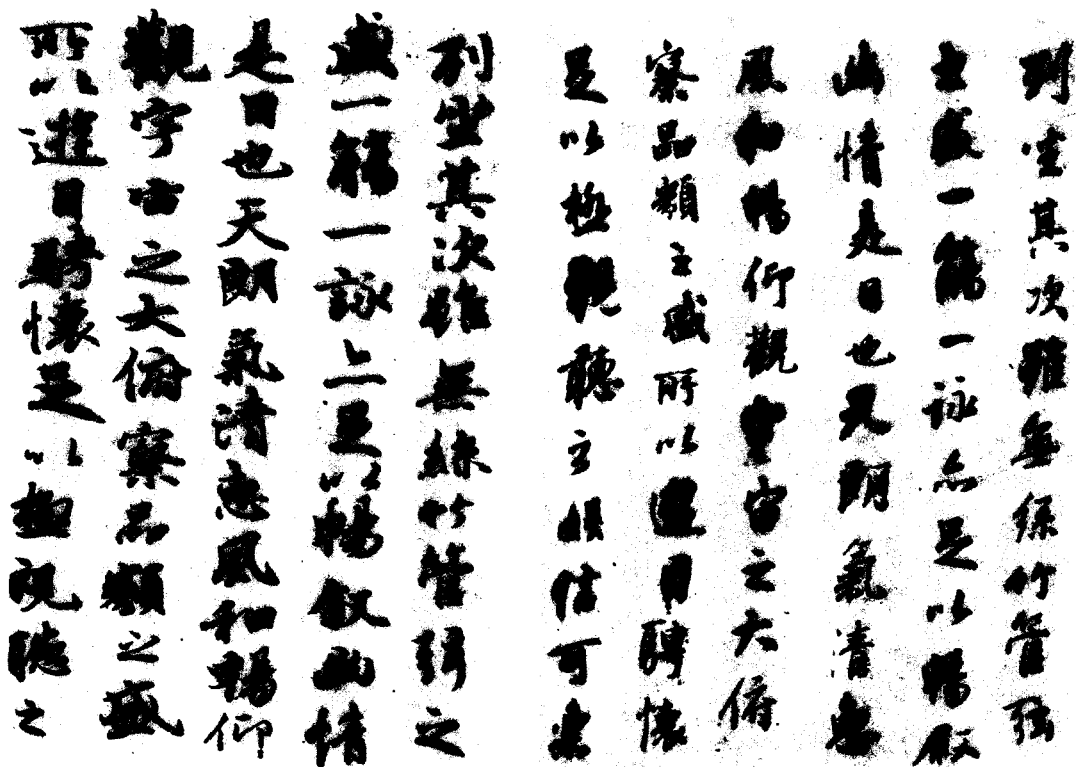 列坐其次雖無絲竹管弦
之盛一觴一詠亦足以暢敘
幽情是日也天朗氣清惠
風和暢仰觀宇宙之大俯
察品類之盛所以遊目騁懷
足以極視聽之娛信可樂
列坐其次雖無絲竹管弦之
盛一觴一詠亦足以暢敘幽情
是日也天朗氣清惠風和暢仰
觀宇宙之大俯察品類之盛
所以遊目騁懷足以極視聽之